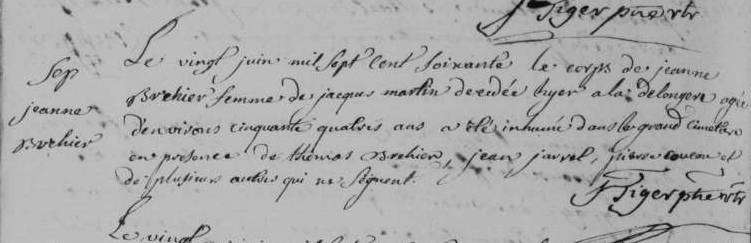 f Tiger ptre vtr
Le vingt juin mil sept cent soixante le corps de jeanne
Sep
jeanne
Brehier
Brehier femme de jacques martin decedée hyer a la delongere agée
d'environs cinquante quatres ans a été inhumée dans le grand cimetiere
en presence de thomas Brehier, jean jarret, pierre et
de plusieurs autres qui ne signent.
f Tiger ptre vtr
Le vingt